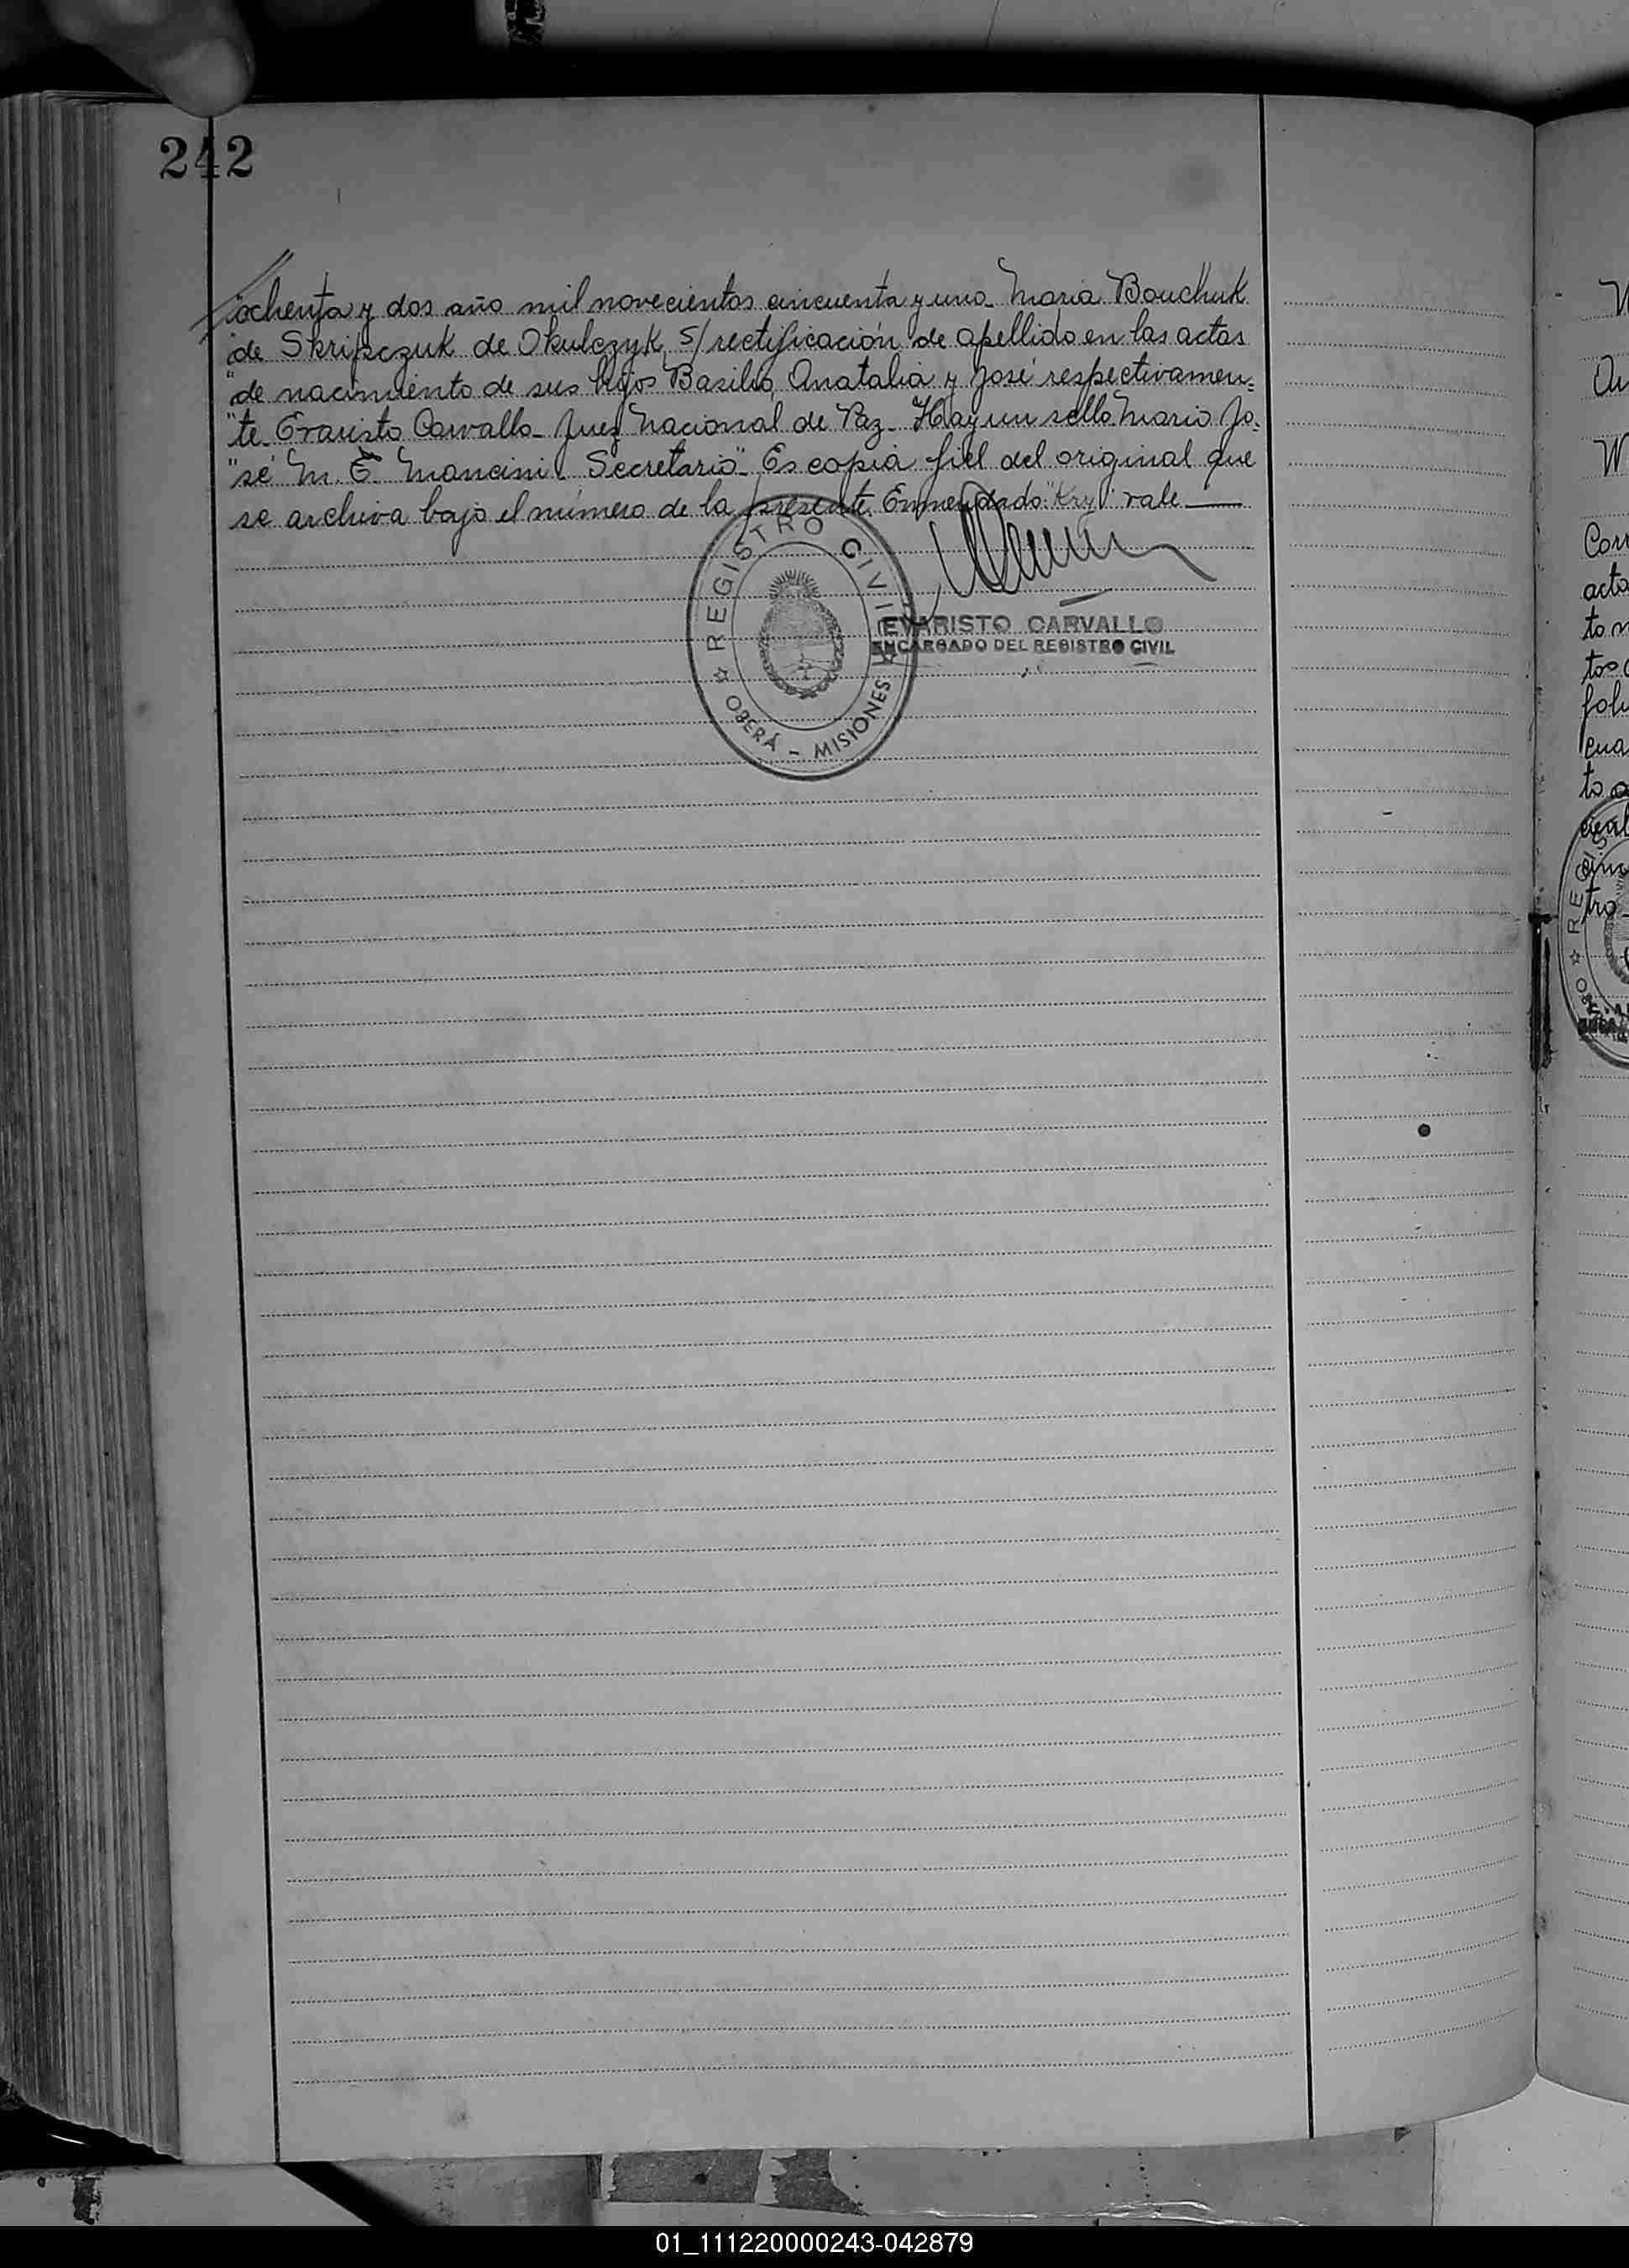 242
"ochenta y dos año mil novecientos cincuenta y uno_ Maria Bouchuk
"de Skripczuk de Okulczyk, s/rectificación de apellido en las actas
"de nacimiento de sus hijos Basilio, Anatalia y José respectivamen=
"te_ Evaristo Carvallo_ Juez Nacional de Paz_ Hay un sello. Mario Jo=
"sé M. E. Mancini. Secretario"_ Es copia fiel del original que
se archiva bajo el número de la presente. Enmendado: "Kry" vale
REGISTRO CIVIL
OBERÁ - MISIONES
EVARISTO CARVALLO
ENCARGADO DEL REGISTRO CIVIL
Corr
acta
to n
tos
foli
cua
to a
tro
01_111220000243-042879